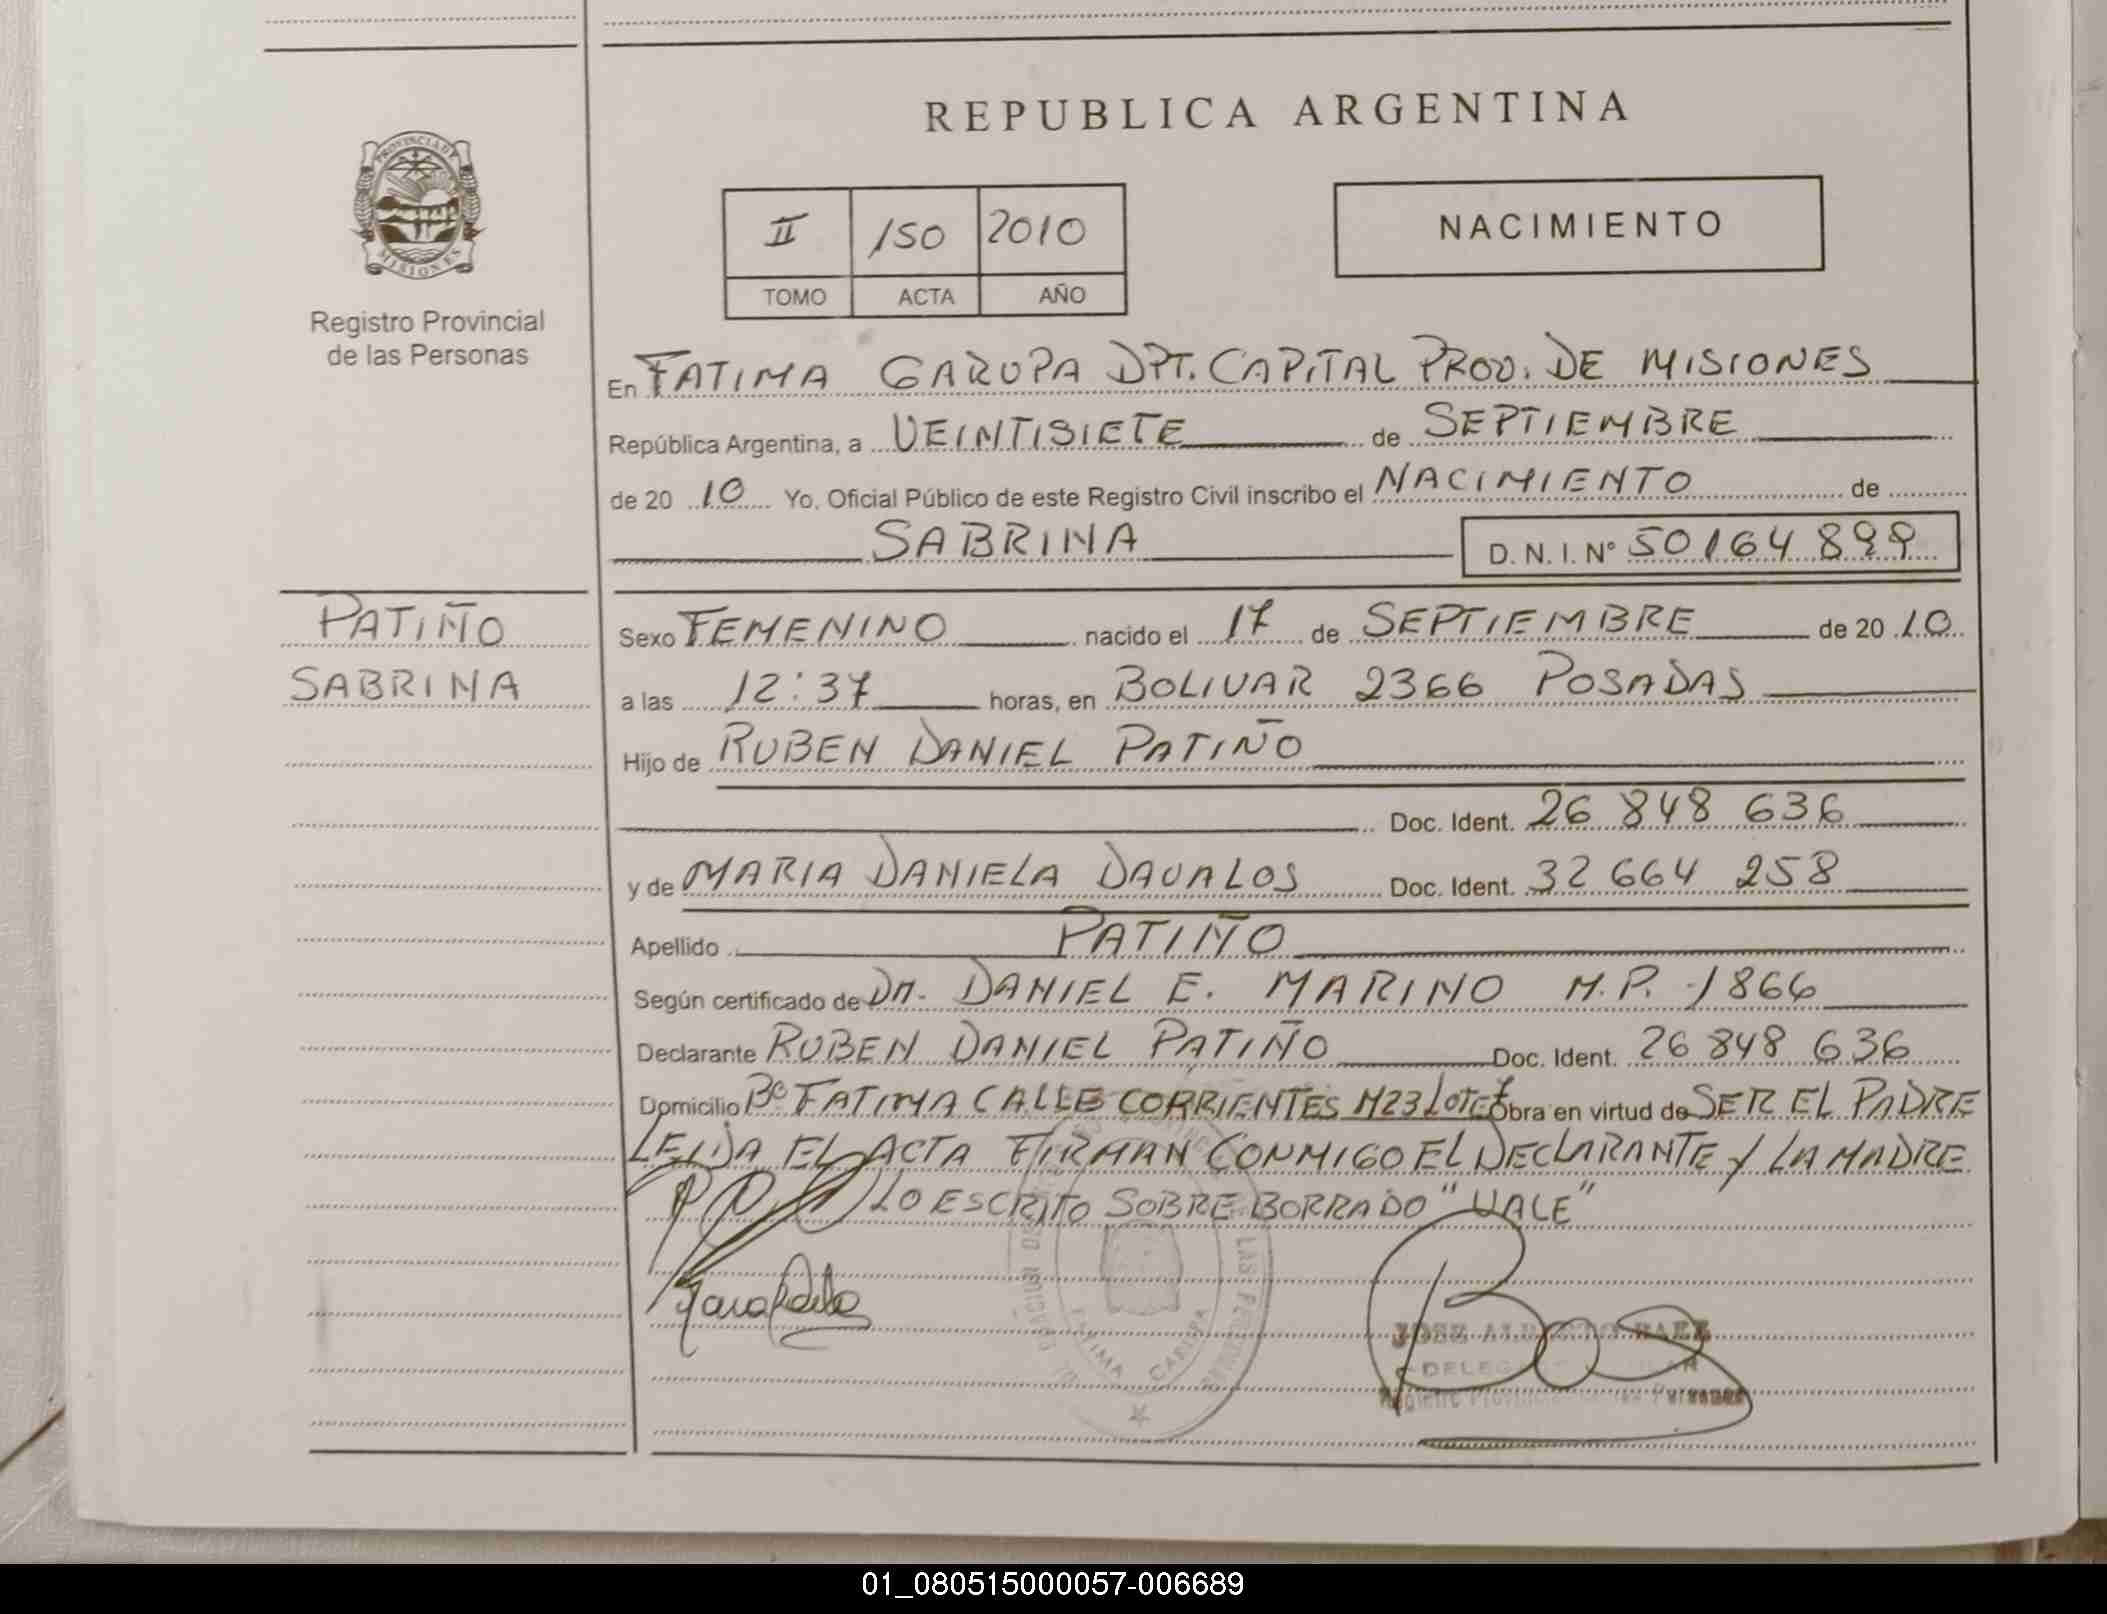 REPUBLICA ARGENTINA
PROVINCIA DE
MISIONES
Registro Provincial
de las Personas
II 150 2010
TOMO ACTA AÑO
NACIMIENTO
En FATIMA GARUPA DPT. CAPITAL PROV. DE MISIONES
República Argentina, a VEINTISIETE de SEPTIEMBRE
de 20 10 Yo, Oficial Público de este Registro Civil inscribo el NACIMIENTO de
SABRINA D.N.I. Nº 50164899
PATIÑO
SABRINA
Sexo FEMENINO nacido el 17 de SEPTIEMBRE de 20 10
a las 12:37 horas, en BOLIVAR 2366 POSADAS
Hijo de RUBEN DANIEL PATIÑO
Doc. Ident. 26 848 636
y de MARIA DANIELA DAVALOS Doc. Ident. 32 664 258
Apellido PATIÑO
Según certificado de Dr. DANIEL E. MARINO M.P. 1866
Declarante RUBEN DANIEL PATIÑO Doc. Ident. 26 848 636
Domicilio Bº FATIMA CALLE CORRIENTES M23 LOTE obra en virtud de SER EL PADRE
LEIDA EL ACTA FIRMAN CONMIGO EL DECLARANTE Y LA MADRE
LO ESCRITO SOBRE BORRADO "VALE"
LAS PERSONAS
FATIMA GARUPA
JOSE ALBERTO BAEZ
Registro Provincial de las Personas
01_080515000057-006689